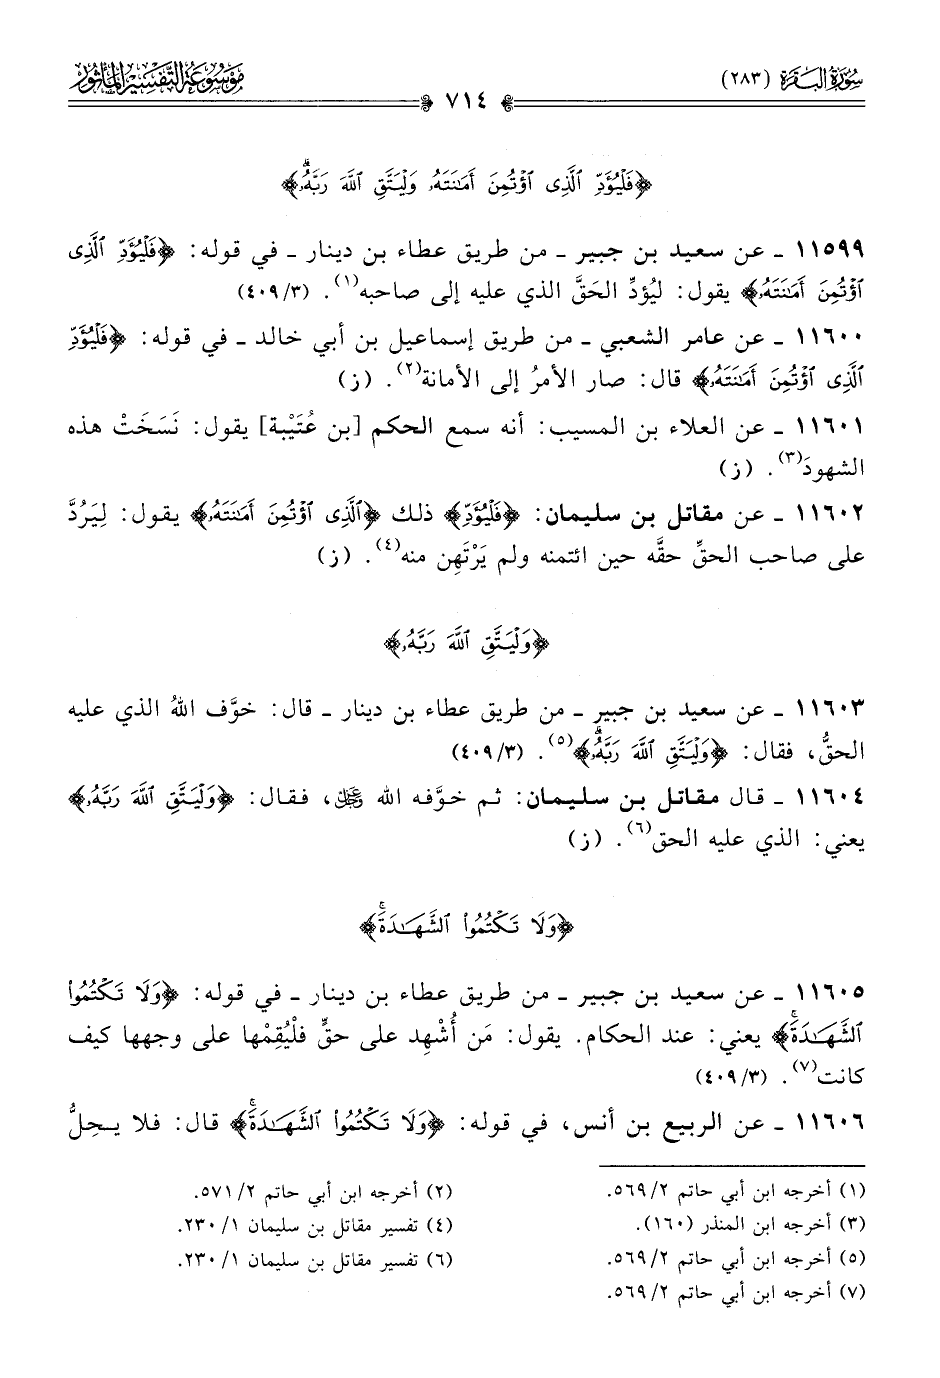 سُورَةُ البَقَرَة (٢٨٣)
مَوْسُوعَةُ التَّفْسِيرِ المَأْثُور
٧١٤
﴿فَلْيُؤَدِّ ٱلَّذِى ٱؤْتُمِنَ أَمَٰنَتَهُۥ وَلْيَتَّقِ ٱللَّهَ رَبَّهُۥۗ﴾
١١٥٩٩ ـ عن سعيد بن جبير ـ من طريق عطاء بن دينار ـ في قوله: ﴿فَلْيُؤَدِّ ٱلَّذِى
ٱؤْتُمِنَ أَمَٰنَتَهُۥ﴾ يقول: ليُؤدِّ الحَقَّ الذي عليه إلى صاحبه(١). (٣/ ٤٠٩)
١١٦٠٠ ـ عن عامر الشعبي ـ من طريق إسماعيل بن أبي خالد ـ في قوله: ﴿فَلْيُؤَدِّ
ٱلَّذِى ٱؤْتُمِنَ أَمَٰنَتَهُۥ﴾ قال: صار الأمرُ إلى الأمانة(٢). (ز)
١١٦٠١ ـ عن العلاء بن المسيب: أنه سمع الحكم [بن عُتَيْبة] يقول: نَسَخَتْ هذه
الشهودَ(٣). (ز)
١١٦٠٢ ـ عن مقاتل بن سليمان: ﴿فَلْيُؤَدِّ﴾ ذلك ﴿ٱلَّذِى ٱؤْتُمِنَ أَمَٰنَتَهُۥ﴾ يقول: لِيَرُدَّ
على صاحب الحقِّ حقَّه حين ائتمنه ولم يَرْتَهِن منه(٤). (ز)
﴿وَلْيَتَّقِ ٱللَّهَ رَبَّهُۥ﴾
١١٦٠٣ ـ عن سعيد بن جبير ـ من طريق عطاء بن دينار ـ قال: خوَّف اللهُ الذي عليه
الحقُّ، فقال: ﴿وَلْيَتَّقِ ٱللَّهَ رَبَّهُۥۗ﴾(٥). (٣/ ٤٠٩)
١١٦٠٤ ـ قال مقاتل بن سليمان: ثم خوَّفه الله ﷿، فقال: ﴿وَلْيَتَّقِ ٱللَّهَ رَبَّهُۥ﴾
يعني: الذي عليه الحق(٦). (ز)
﴿وَلَا تَكْتُمُوا۟ ٱلشَّهَٰدَةَۚ﴾
١١٦٠٥ ـ عن سعيد بن جبير ـ من طريق عطاء بن دينار ـ في قوله: ﴿وَلَا تَكْتُمُوا۟
ٱلشَّهَٰدَةَۚ﴾ يعني: عند الحكام. يقول: مَن أُشْهِد على حقٍّ فلْيُقِمْها على وجهها كيف
كانت(٧). (٣/ ٤٠٩)
١١٦٠٦ ـ عن الربيع بن أنس، في قوله: ﴿وَلَا تَكْتُمُوا۟ ٱلشَّهَٰدَةَۚ﴾ قال: فلا يحِلُّ
(١) أخرجه ابن أبي حاتم ٢/ ٥٦٩.
(٢) أخرجه ابن أبي حاتم ٢/ ٥٧١.
(٣) أخرجه ابن المنذر (١٦٠).
(٤) تفسير مقاتل بن سليمان ١/ ٢٣٠.
(٥) أخرجه ابن أبي حاتم ٢/ ٥٦٩.
(٦) تفسير مقاتل بن سليمان ١/ ٢٣٠.
(٧) أخرجه ابن أبي حاتم ٢/ ٥٦٩.